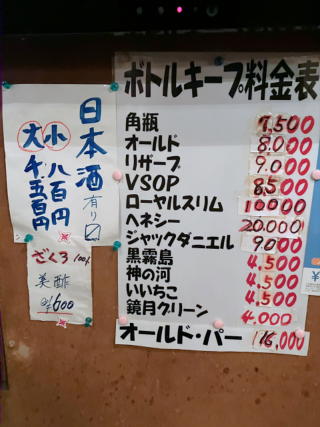 ボトルキープ料金表
角瓶 7,500
オールド 8,000
リザーブ 9,000
VSOP 8,500
ローヤルスリム 10000
ヘネシー 20,000
ジャックダニエル 9,000
黒霧島 4,500
神の河 4,500
いいちこ 4,500
鏡月グリーン 4,000
オールド・パー 16,000
日本酒有り
小 八百円
大 千五百円
ざくろ 100%
美酢
¥600